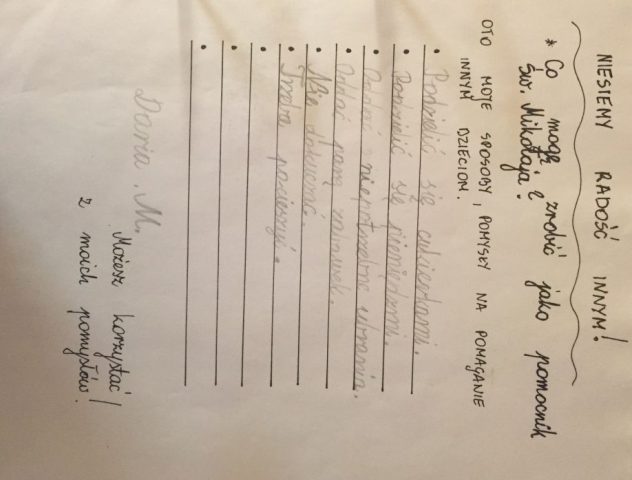 NIESIEMY RADOŚĆ INNYM!
* Co mogę zrobić jako pomocnik
św. Mikołaja?
OTO MOJE SPOSOBY, POMYSŁY NA POMAGANIE
INNYM DZIECIOM.
• Podzielić się cukierkami.
• Podzielić się pieniędzmi.
• Oddać niepotrzebne ubrania.
• Oddać parę zabawek.
• Nie dokuczać.
• Trzeba pocieszyć.
Daria. M.
Możesz korzystać
z moich pomysłów!